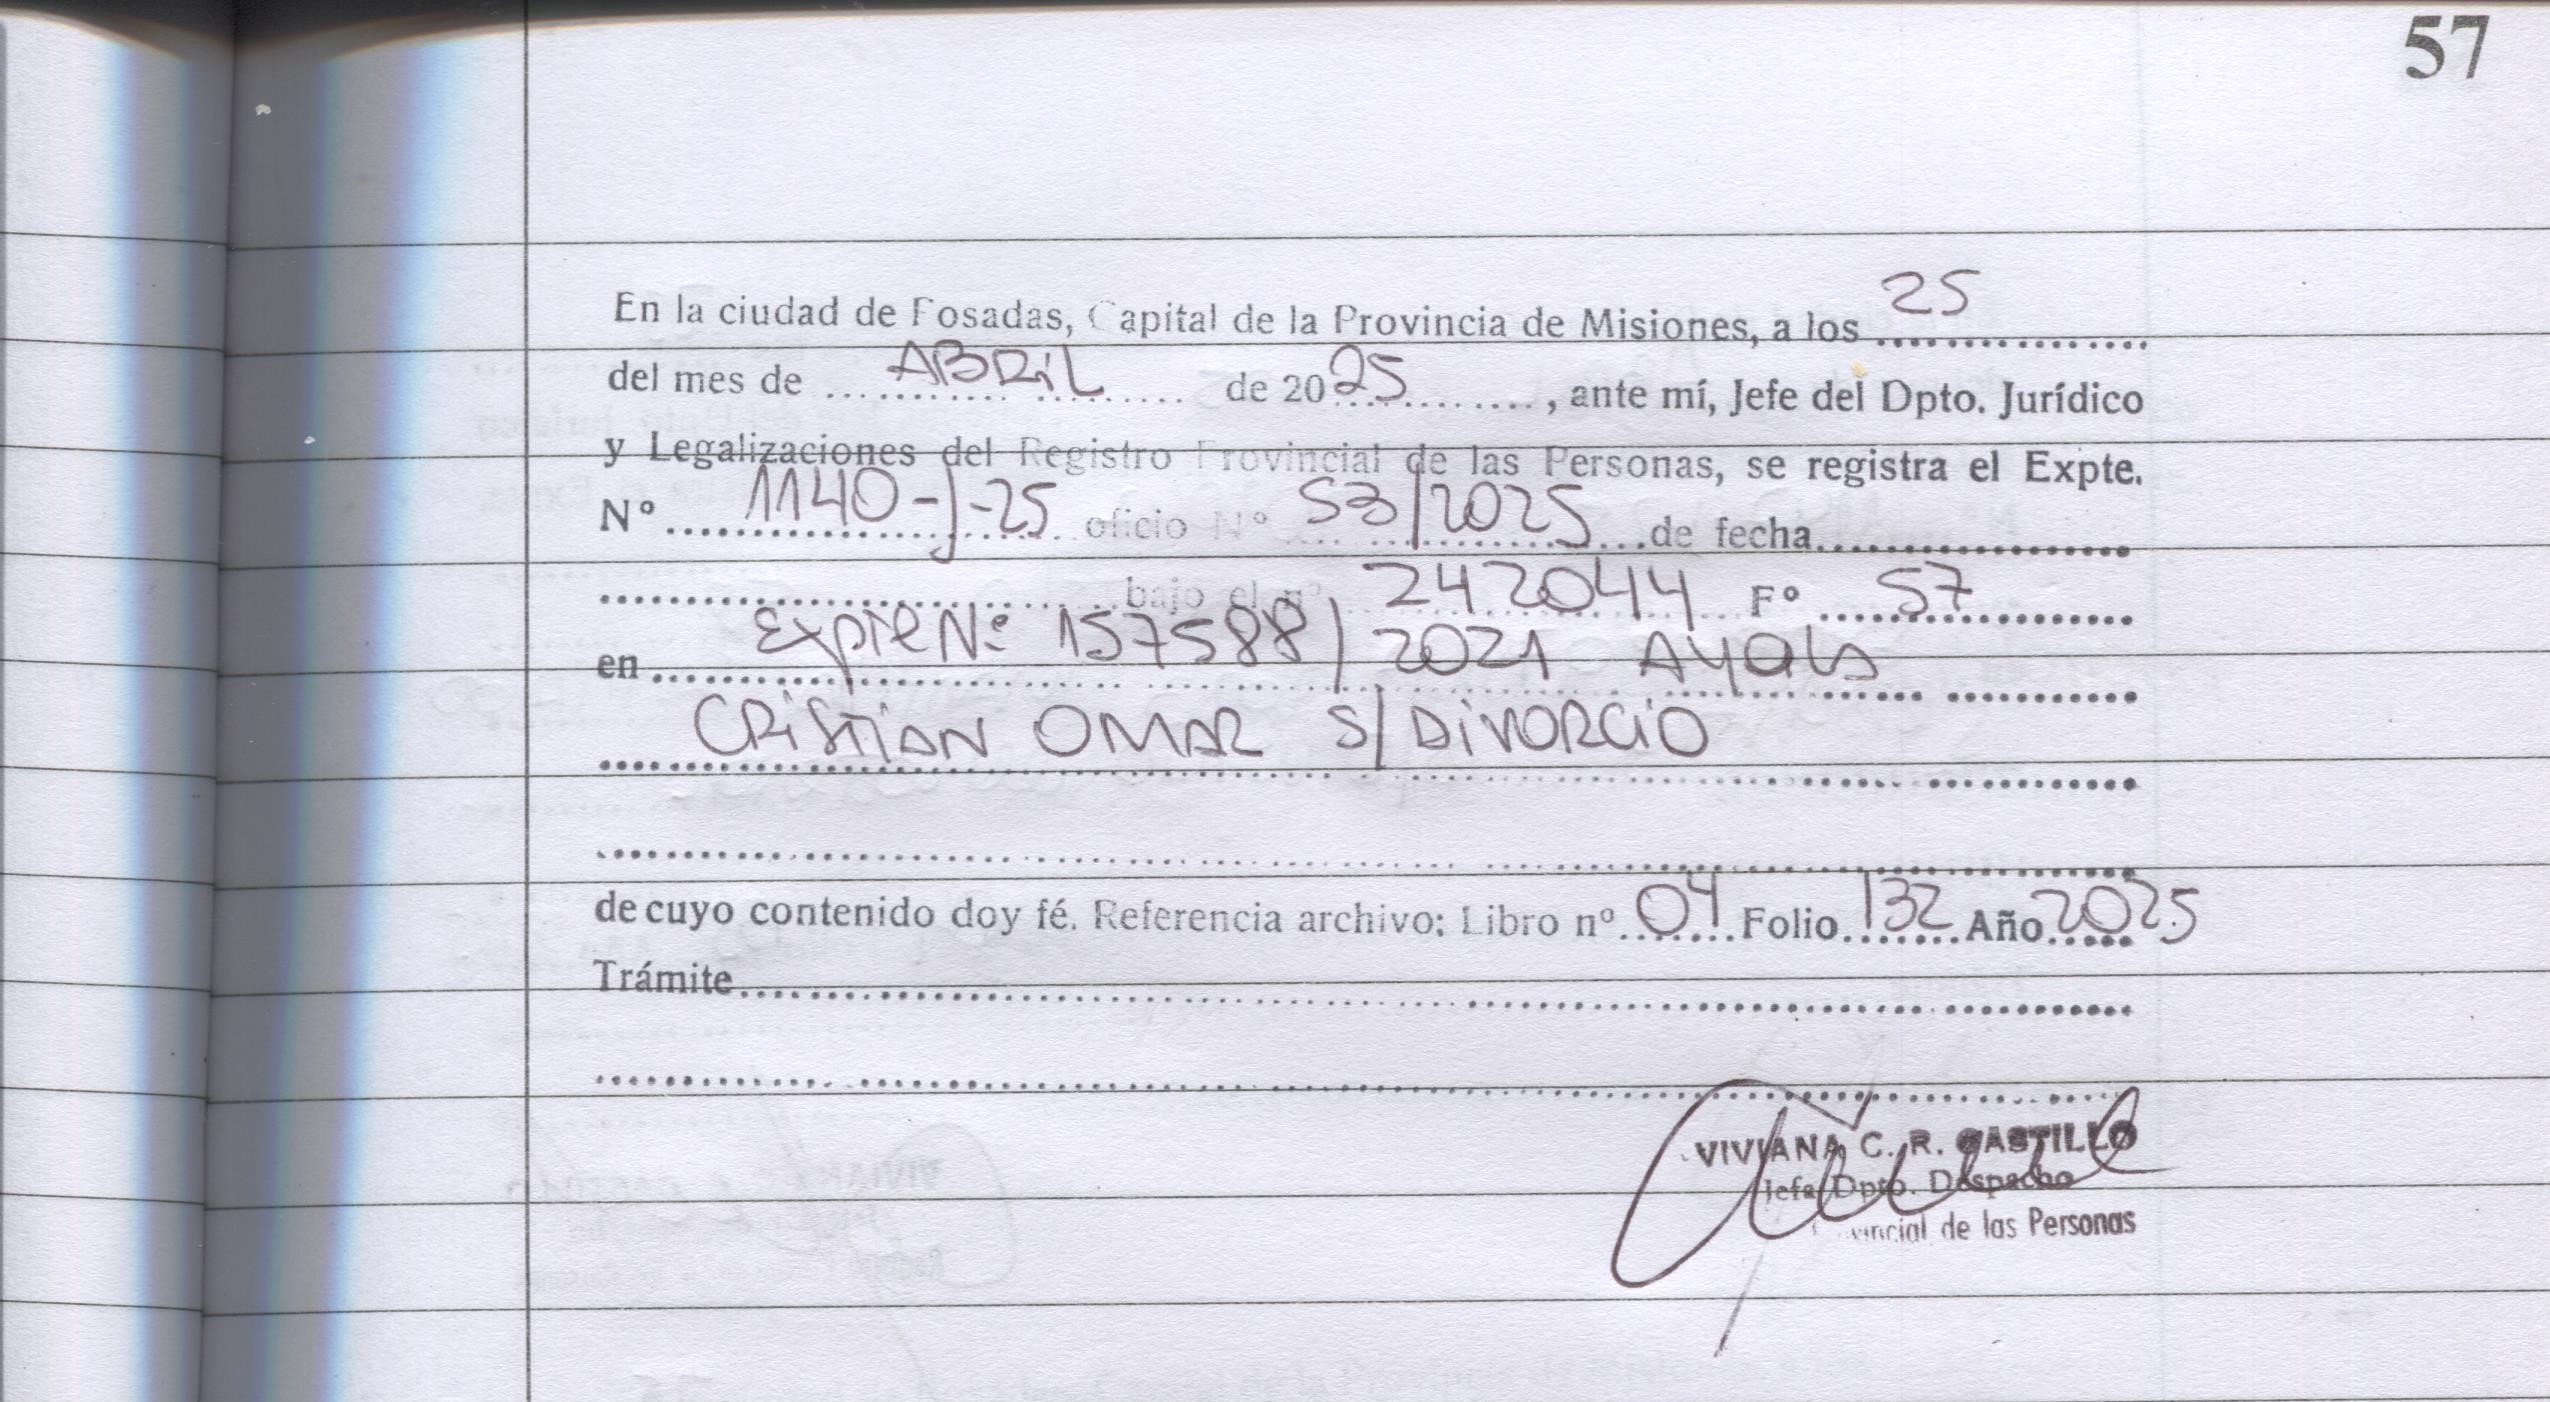 57
En la ciudad de Posadas, Capital de la Provincia de Misiones, a los 25
del mes de ABRIL de 2025, ante mí, Jefe del Dpto. Jurídico
y Legalizaciones del Registro Provincial de las Personas, se registra el Expte.
Nº 1140-J-25 oficio Nº 53/2025 de fecha
bajo el nº 242044 Fº 57
en Expte Nº 157588/2021 Ayala
CRISTIAN OMAR S/DIVORCIO
de cuyo contenido doy fé. Referencia archivo: Libro nº 04 Folio 132 Año 2025
Trámite
VIVIANA C. R. CASTILLO
Jefa Dpto. Despacho
Provincial de las Personas